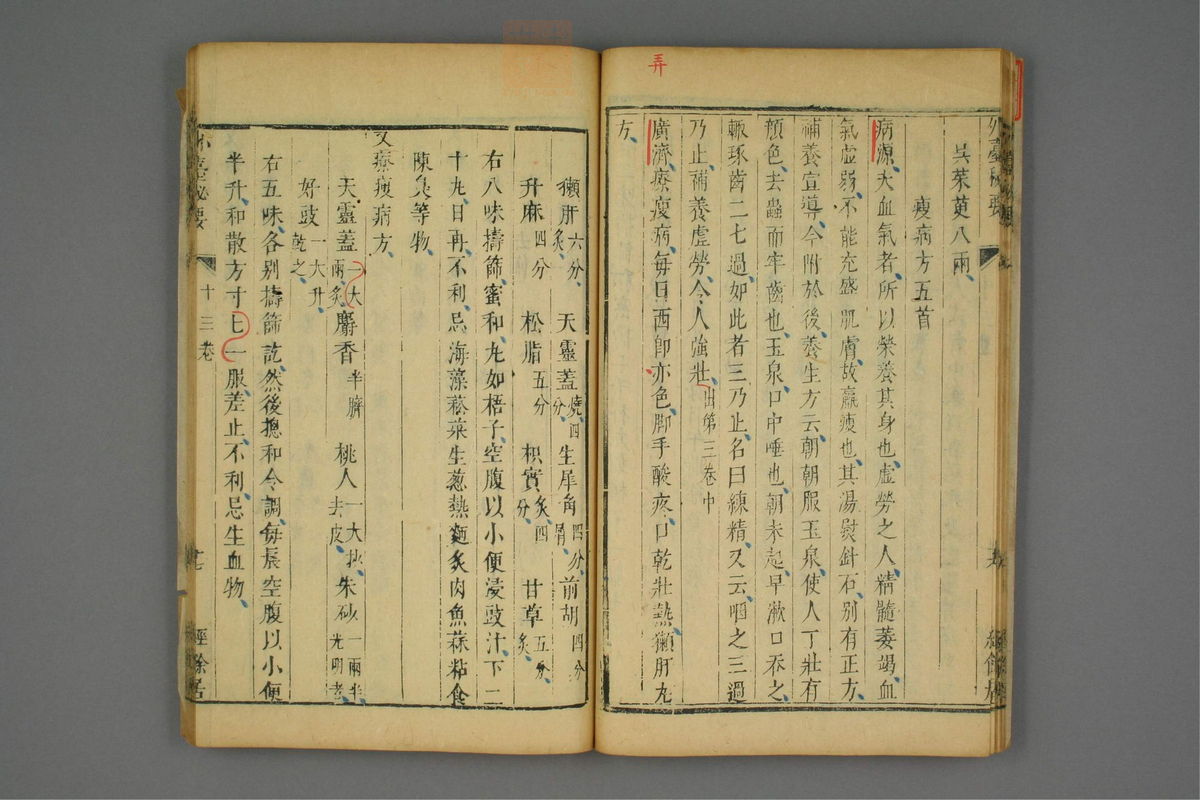 弄
外臺秘要
吳茱萸八兩
瘦病方五首
病源大血氣者所以榮養其身也虛勞之人精髓萎竭血
氣虛弱不能充盛肌膚故羸瘦也其湯熨針石別有正方
補養宣導今附於後養生方云朝朝服玉泉使人丁壯有
顏色去蟲而牢齒也玉泉口中唾也朝未起早漱口吞之
輒琢齒二七過如此者三乃止名曰練精又云咽之三過
乃止補養虛勞令人強壯出第三卷中
廣濟療瘦病每日西即赤色脚手酸疼口乾壯熱獺肝丸
方
獺肝六分炙 天靈蓋燒四分 生犀角四分屑 前胡四分
升麻四分 松脂五分 枳實炙四分 甘草五分炙
右八味擣篩蜜和丸如梧子空腹以小便浸豉汁下二
十丸日再不利忌海藻菘菜生葱熱麵炙肉魚蒜粘食
陳臭等物
又療瘦病方
天靈蓋一大兩炙 麝香半臍 桃人一大抄去皮 朱砂一兩半光明者
好豉一大升乾之
右五味各別擣篩訖然後摠和令調每晨空腹以小便
半升和散方寸匕一服差止不利忌生血物
外臺秘要 十三卷 十七 經餘居